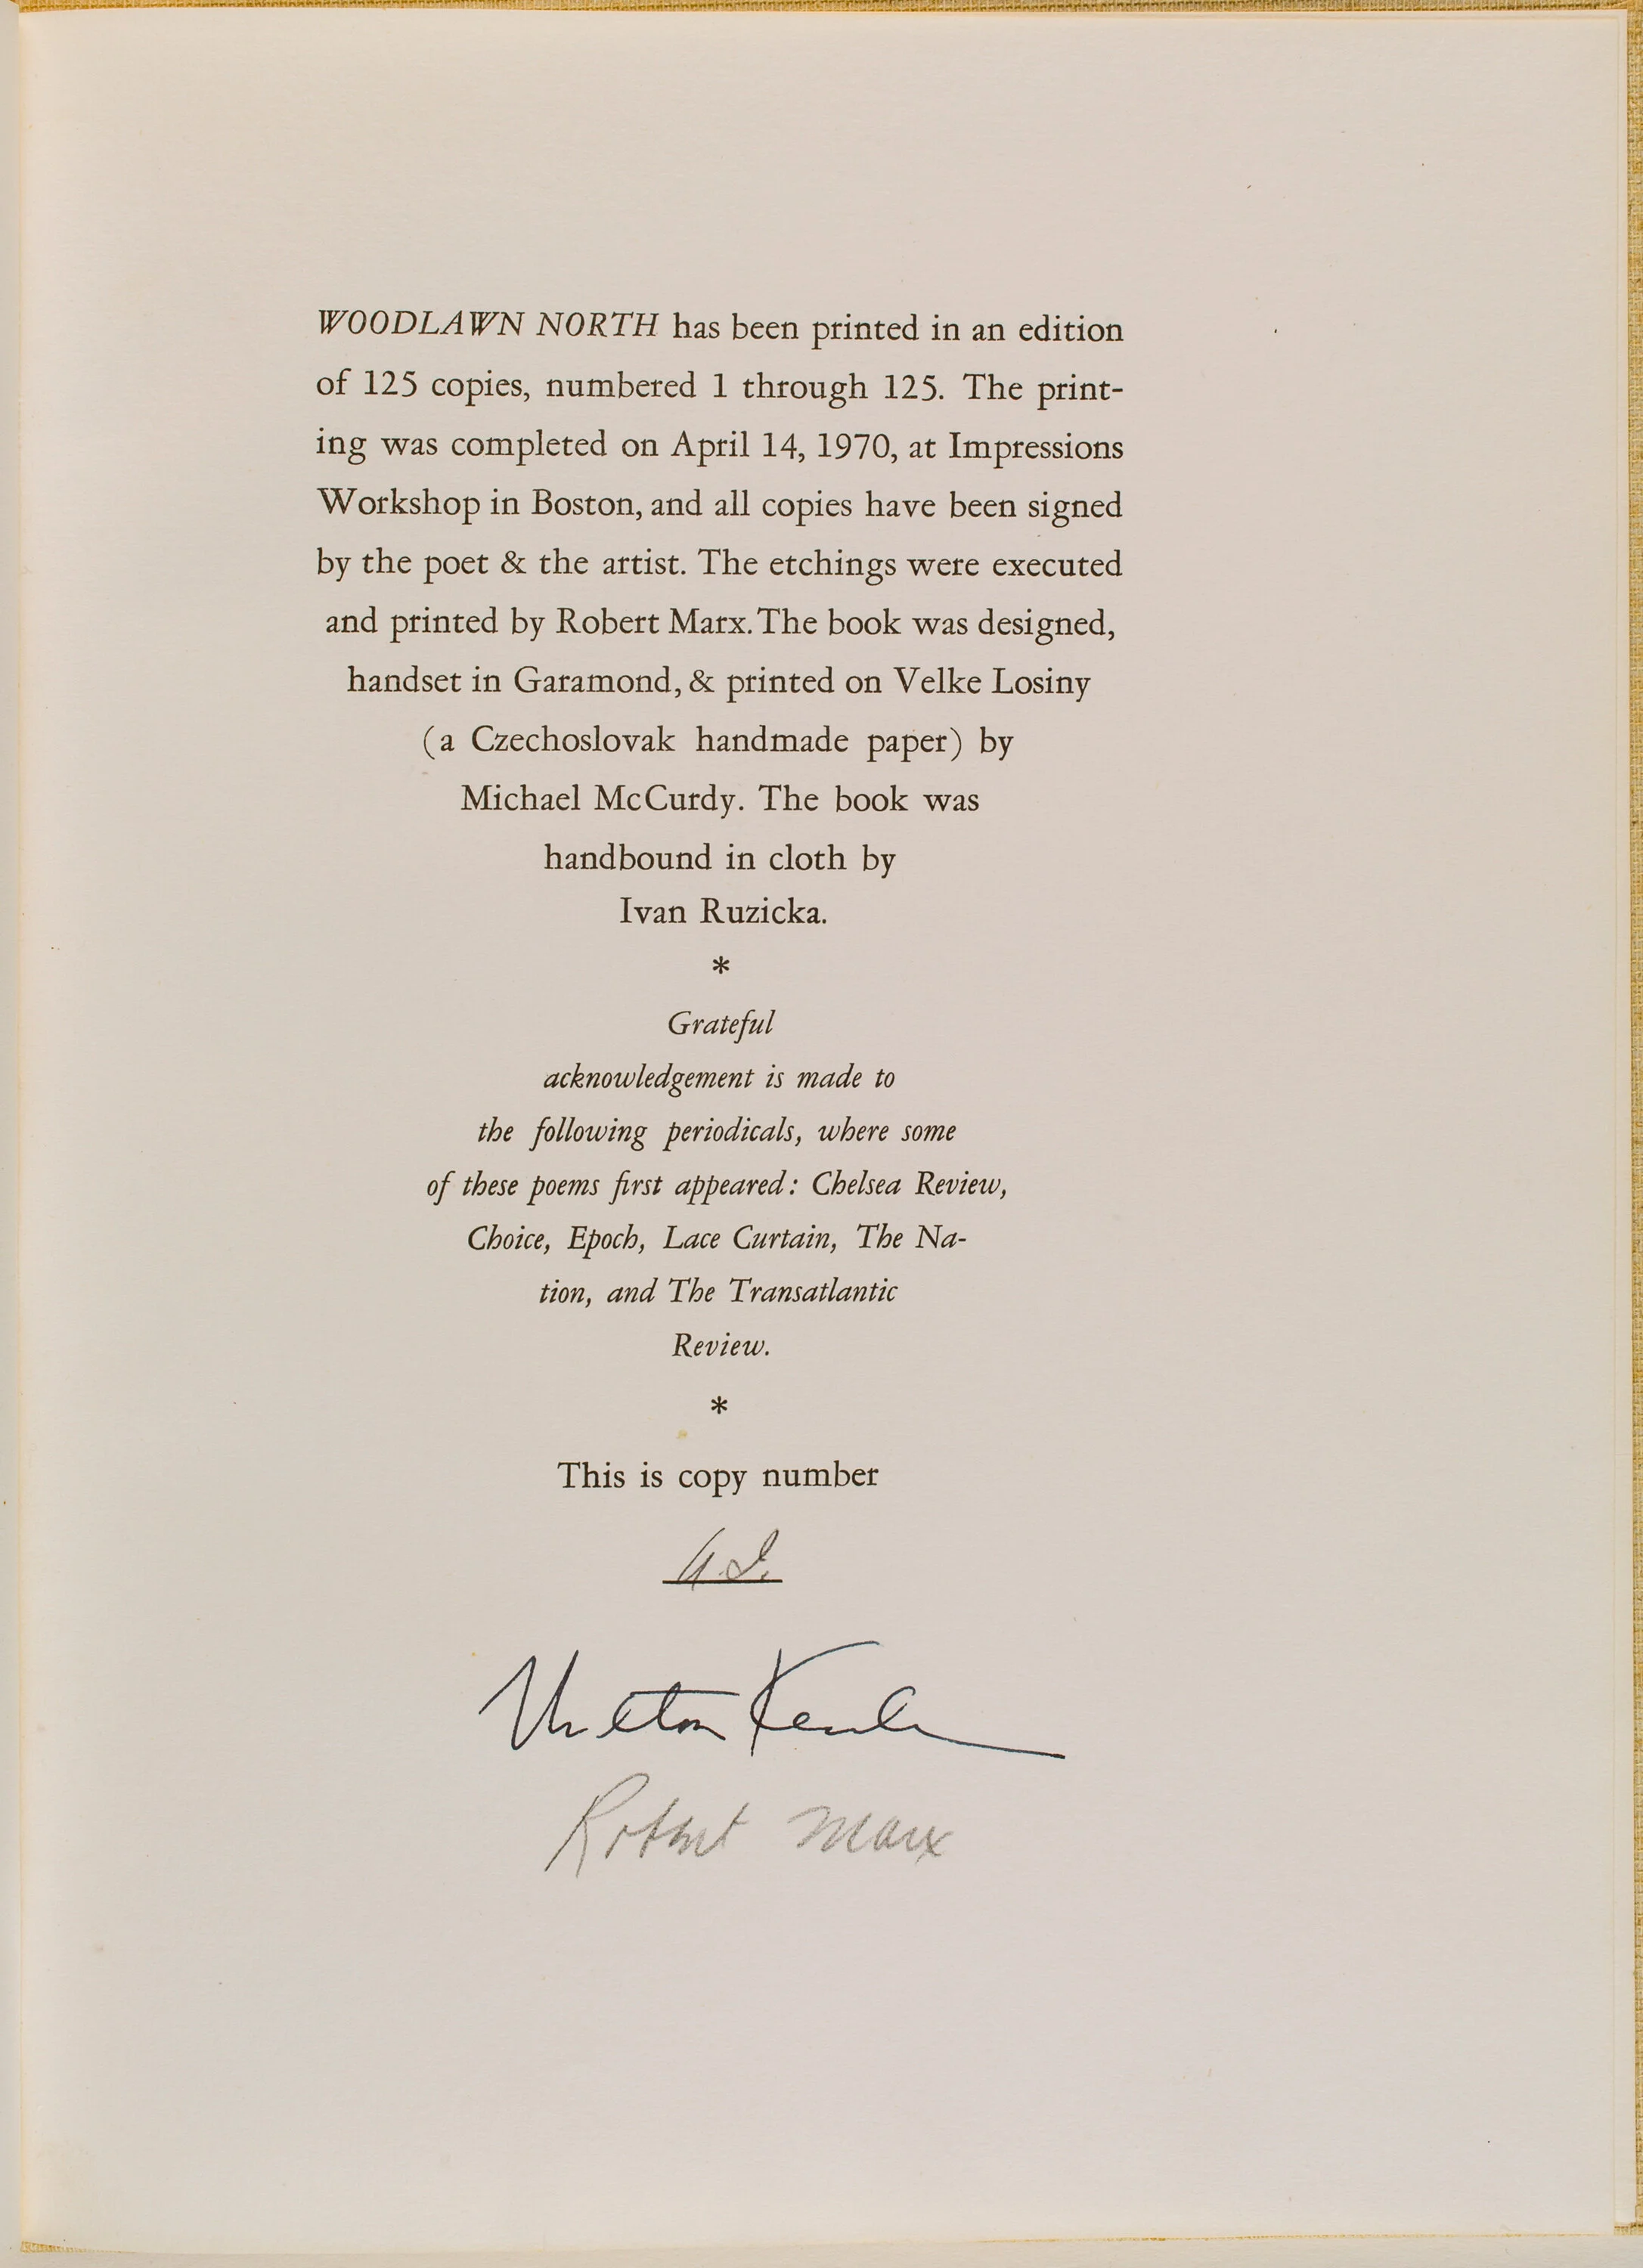 WOODLAWN NORTH has been printed in an edition
of 125 copies, numbered 1 through 125. The print-
ing was completed on April 14, 1970, at Impressions
Workshop in Boston, and all copies have been signed
by the poet & the artist. The etchings were executed
and printed by Robert Marx. The book was designed,
handset in Garamond, & printed on Velke Losiny
(a Czechoslovak handmade paper) by
Michael McCurdy. The book was
handbound in cloth by
Ivan Ruzicka.
*
Grateful
acknowledgement is made to
the following periodicals, where some
of these poems first appeared: Chelsea Review,
Choice, Epoch, Lace Curtain, The Na-
tion, and The Transatlantic
Review.
*
This is copy number
Milton Kessler
Robert Marx